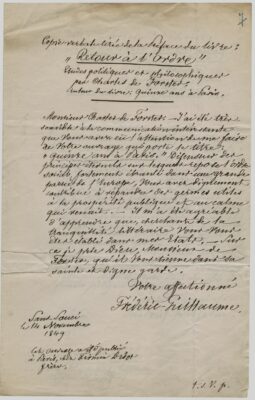 7
Copie verbale tirée de la Préface du livre:
"Retour à l'Ordre"
Etudes politiques et philosophiques
par Charles de Forster.
Auteur du livre: Quinze ans à Paris.
Monsieur Charles de Forster - J'ai été très
sensible à la communication intéressante
que vous avez eu l'attention de me faire
de Votre ouvrage qui porte le titre:
"Quinze ans à Paris." Défenseur des
principes sur lesquels repose l'ordre
social, fortement ébranlé dans une grande
partie de l'Europe, Vous avez dignement
contribué à répandre des germes utiles
à la prospérité publique et au calme
qui renait. - Il m'a été agréable
d'apprendre que, cherchant de la
tranquillité littéraire Vous Vous
êtes établi dans mes Etats - Sur
ce je prie Dieu, Monsieur de
Forster, qu'il Vous tienne dans sa
sainte et digne garde.
Votre affectionné
Frédéric-Guillaume.
Sans Souci
le 14 Novembre
1849
Cet ouvrage a été publié
à Paris, chez Firmin Didot
frères.
t. s. v. p.